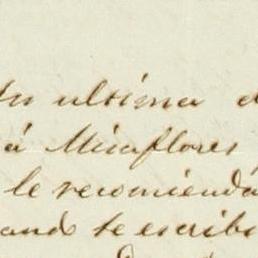 tu ultima d
á Miraflores
le recomiendá
ando te escribi